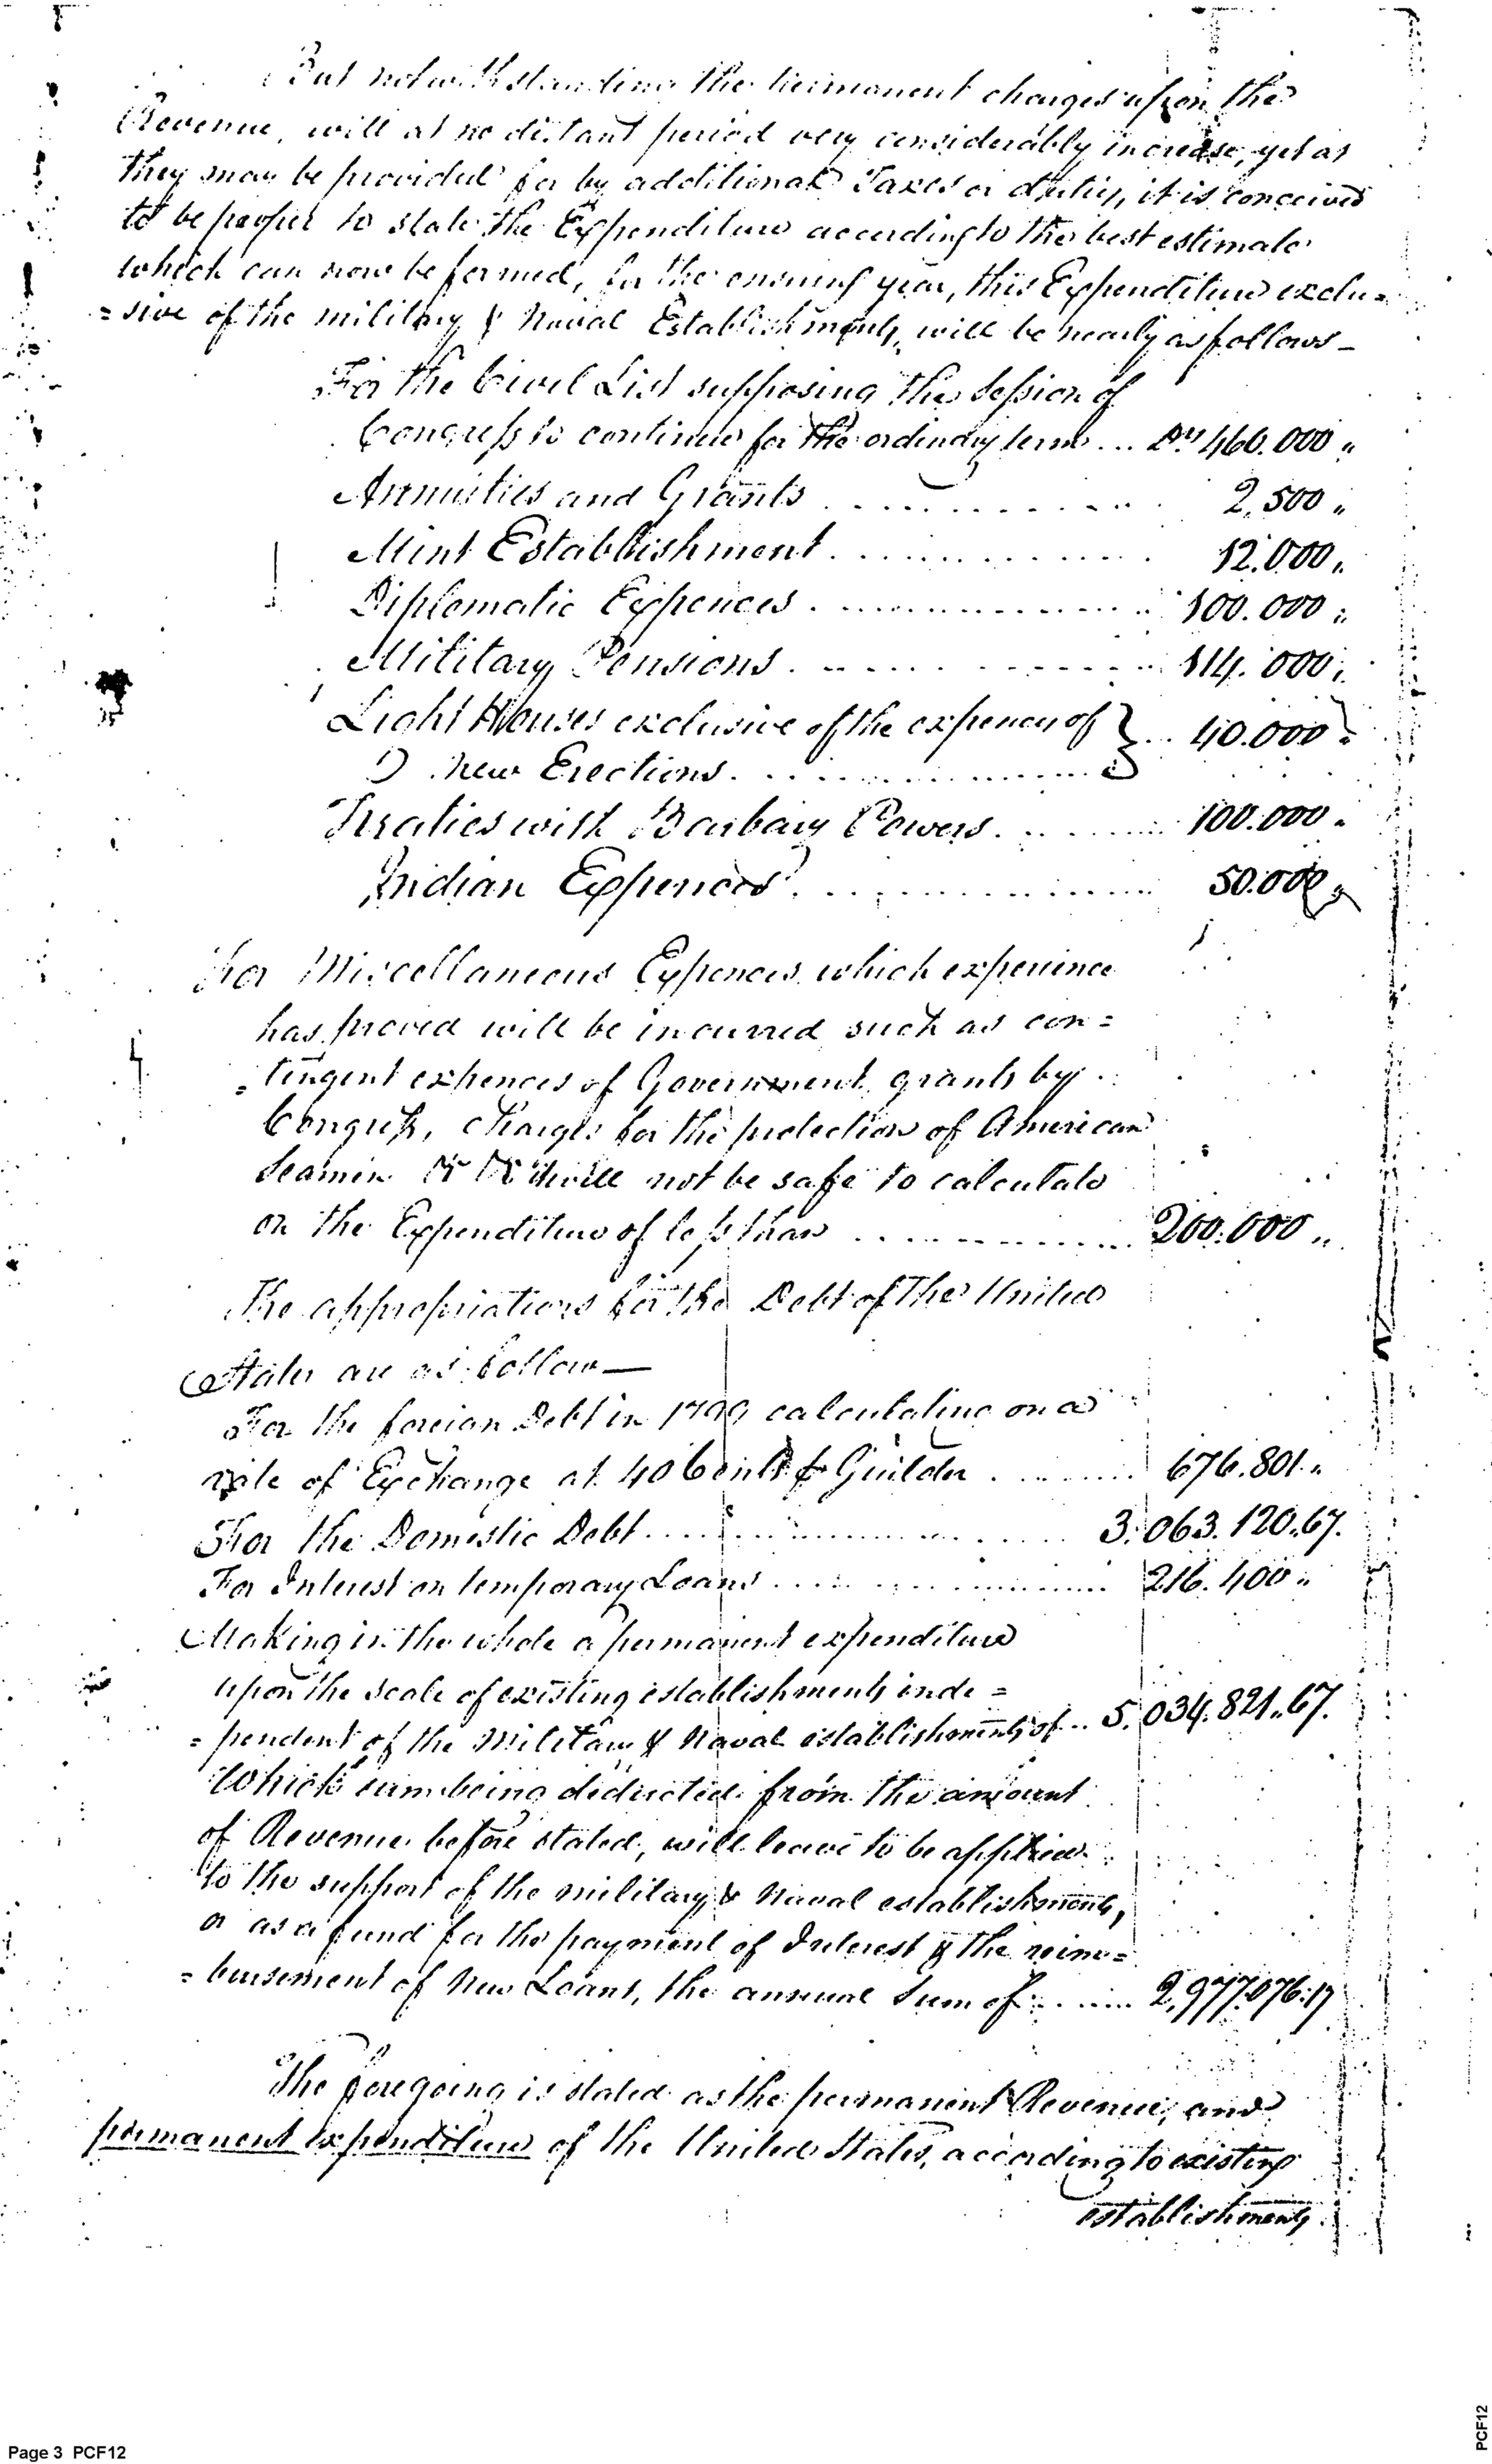 But notwithstanding the permanent charges upon the
Revenue, will at no distant period very considerably increase, yet as
they may be provided for by additional Taxes or duties, it is conceived
to be proper to state the Expenditure according to the best estimate
which can now be formed, for the ensuing year, this Expenditure exclu=
=sive of the military & Naval Establishments, will be nearly as follows—
For the Civil List supposing the Session of
Congress to continue for the ordinary term ... Drs 460.000 "
Annuities and Grants ............ 2,500 "
Mint Establishment ............ 12.000 "
Diplomatic Expences ............ 100.000 "
Military Pensions ............ 114.000 "
Light Houses exclusive of the expences of } .. 40.000 "
New Erections ............
Treaties with Barbary Powers ......... 100.000 "
Indian Expences ............ 50.000 "
For Miscellaneous Expences which experience
has proved will be incurred such as con=
=tingent expences of Government, grants by
Congress, Charges for the protection of American
Seamen &c &c it will not be safe to calculate
on the Expenditure of less than ............ 200.000 "
The appropriations for the Debt of The United
States are as follow—
For the foreign Debt in 1799 calculating on a
rate of Exchange at 40 Cents Guilder ......... 676.801 "
For the Domestic Debt ............ 3.063.120.67.
For Interest on temporary Loans ............ 216.400 "
Making in the whole a permanent expenditure
upon the scale of existing establishments inde=
=pendent of the Military & Naval establishments of .. 5.034.821.67.
Which sum being deducted from the amount
of Revenue before stated, will leave to be applied
to the support of the military & Naval establishments,
or as a fund for the payment of Interest & the reim=
=bursement of New Loans, the annual Sum of ...... 2,977.076:17
The foregoing is stated as the permanent Revenue, and
permanent expenditure of the United States, according to existing
establishments
Page 3 PCF12
PCF12